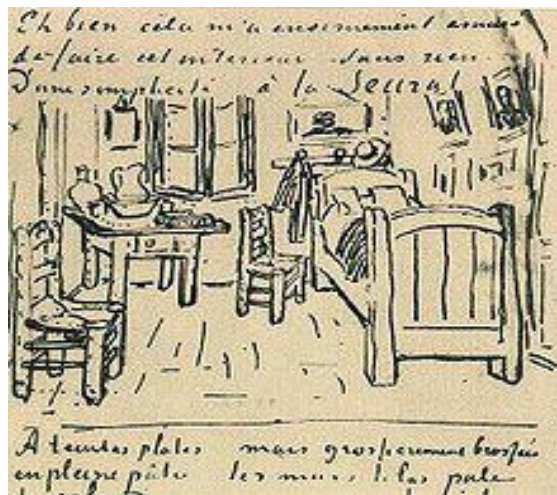 Eh bien cela m'a énormément amusé
de faire cet intérieur sans rien.
D'une simplicité à la Seurat
À teintes plates mais grossièrement brossées
en pleine pâte les murs lilas pale